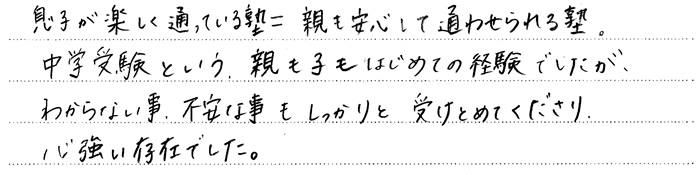 息子が楽しく通っている塾＝親も安心して通わせられる塾。
中学受験という、親も子もはじめての経験でしたが、
わからない事、不安な事もしっかりと受けとめてくださり、
心強い存在でした。